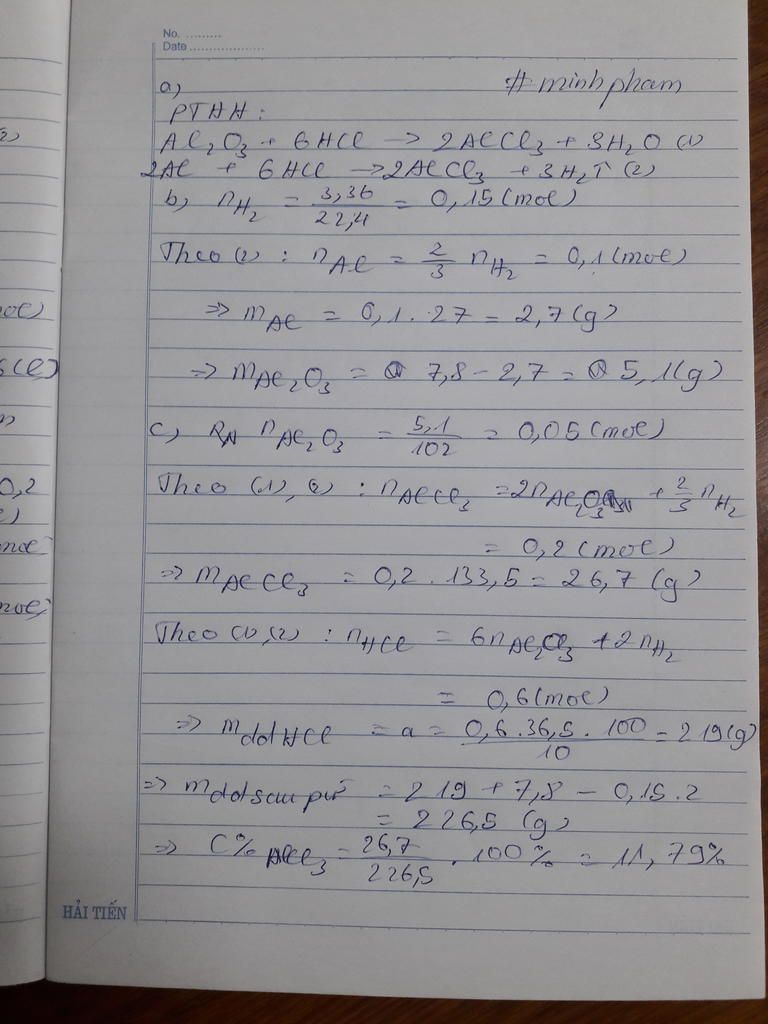 No. .........
Date ...................
a)
#minhpham
PTHH:
Al₂O₃ + 6HCl → 2AlCl₃ + 3H₂O (1)
2Al + 6HCl → 2AlCl₃ + 3H₂↑ (2)
b) nH₂ = 3,36/22,4 = 0,15 (mol)
Theo (2) : nAl = 2/3 nH₂ = 0,1 (mol)
⇒ mAl = 0,1 . 27 = 2,7 (g)
⇒ mAl₂O₃ = 7,8 - 2,7 = 5,1 (g)
c) nAl₂O₃ = 5,1/102 = 0,05 (mol)
Theo (1), (2) : nAlCl₃ = 2nAl₂O₃ + 2/3 nH₂
= 0,2 (mol)
⇒ mAlCl₃ = 0,2 . 133,5 = 26,7 (g)
Theo (1), (2) : nHCl = 6nAl₂O₃ + 2nH₂
= 0,6 (mol)
⇒ mddHCl = a = 0,6 . 36,5 . 100/10 = 219 (g)
⇒ mdd sau pứ = 219 + 7,8 - 0,15 . 2
= 226,5 (g)
⇒ C% AlCl₃ = 26,7/226,5 . 100% = 11,79%
HẢI TIẾN